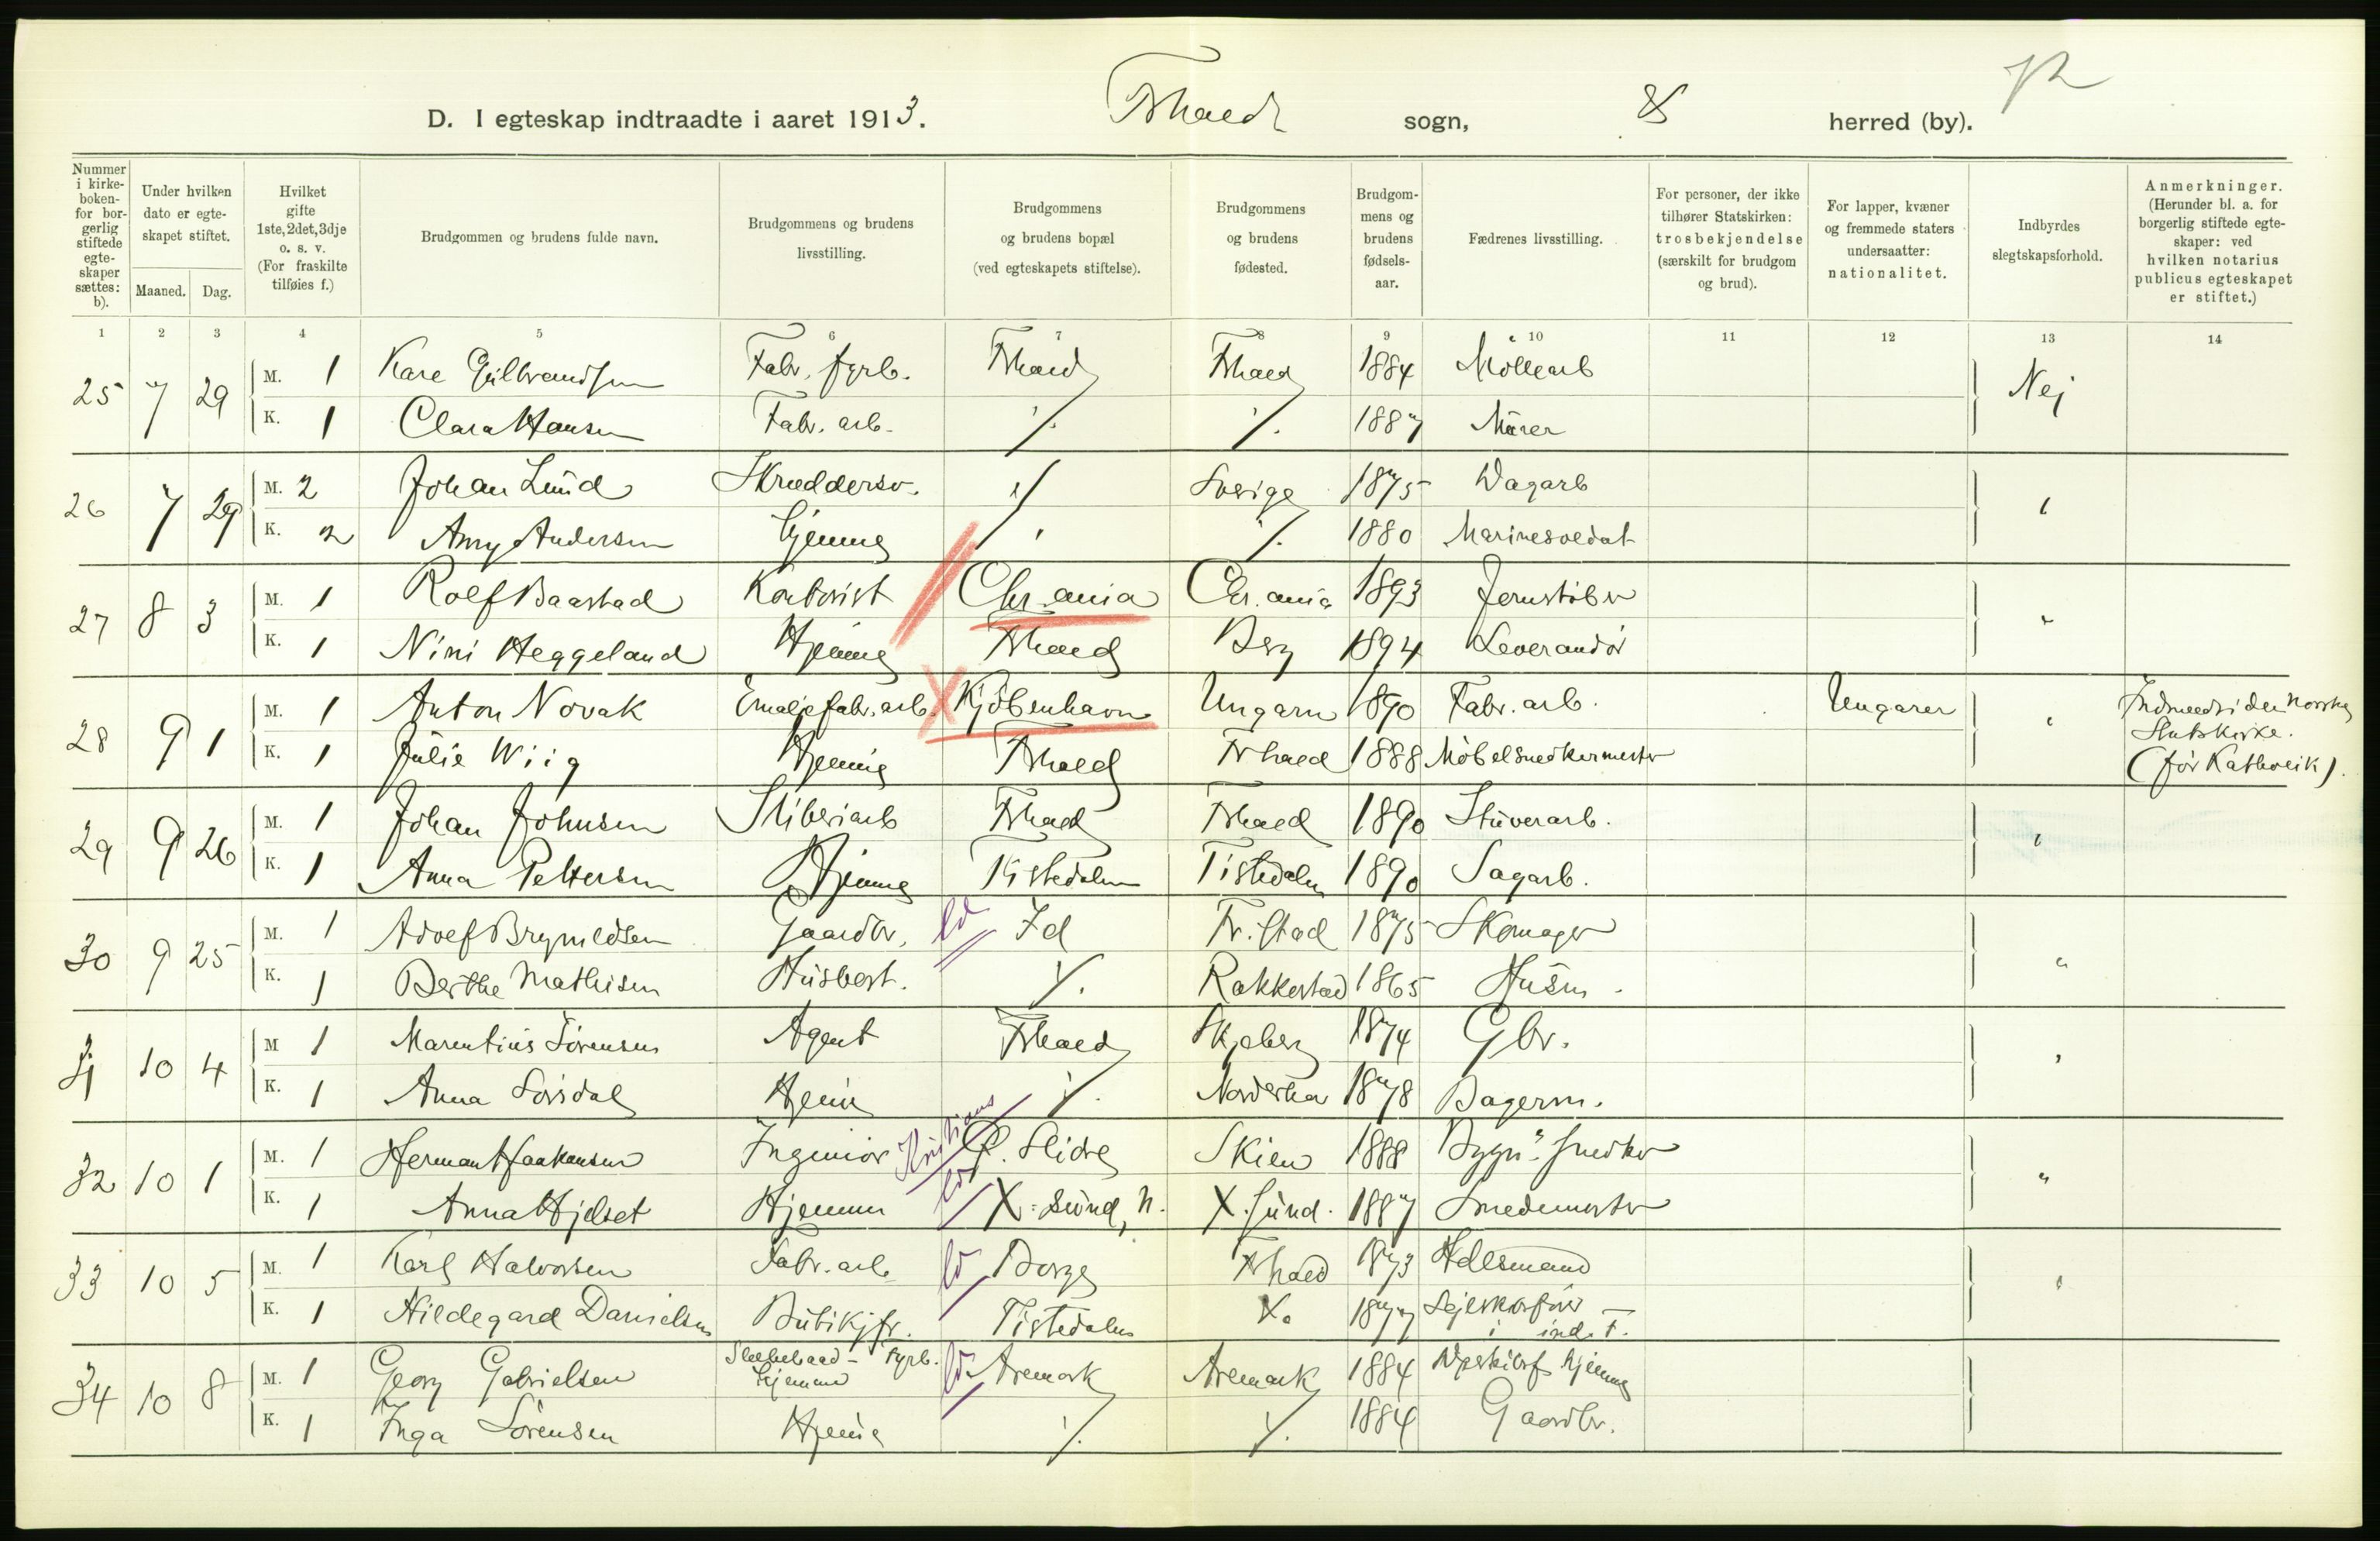 D. I egteskap indtraadte i aaret 1913. Frhald sogn, herred (by).
Nummer i kirkeboken- for borgerlig stiftede egteskaper sættes: b).
Under hvilken dato er egteskapet stiftet.
Maaned. Dag.
Hvilket gifte 1ste, 2det, 3dje o. s. v. (For fraskilte tilføies f.)
Brudgommen og brudens fulde navn.
Brudgommens og brudens livsstilling.
Brudgommens og brudens bopæl (ved egteskapets stiftelse).
Brudgommens og brudens fødested.
Brudgommens og brudens fødselsaar.
Fædrenes livsstilling.
For personer, der ikke tilhører Statskirken: trosbekjendelse (særskilt for brudgom og brud).
For lapper, kvæner og fremmede staters undersaatter: nationalitet.
Indbyrdes slegtskapsforhold.
Anmerkninger. (Herunder bl. a. for borgerlig stiftede egteskaper: ved hvilken notarius publicus egteskapet er stiftet.)
1 2 3 4 5 6 7 8 9 10 11 12 13 14
25 7 29 M. 1 Kare Gulbrandsen Fabr. fyrb. Frhald Frhald 1884 Möllearb Nej
K. 1 Clara Hansen Fabr. arb. ./. ./. 1887 Murer
26 7 29 M. 2 Johan Lund Skreddersv. ./. Sverige 1875 Dagarb "
K. 2 Anny Andersen Hjemme ./. ./. 1880 Marinesoldat
27 8 3 M. 1 Rolf Baastad Kontorist Chr.ania Chr.ania 1893 Jernstöber "
K. 1 Nini Heggeland Hjemme Frhald Berg 1894 Leverandör
28 9 1 M. 1 Anton Novak Emaljefabr. arb. X Kjöbenhavn Ungarn 1890 Fabr. arb. Ungarer " Indmeldt i den norske
Statskirke.
K. 1 Julie Wiig Hjemme Frhald Frhald 1888 Möbelsnedkermester (för Katholik).
29 9 26 M. 1 Johan Johnsen Sliberiarb Frhald Frhald 1890 Stuverarb. "
K. 1 Anna Pettersen Hjemme Tistedalen Tistedalen 1890 Sagarb.
30 9 25 M. 1 Adolf Brynildsen Gaardbr. Id Fr.stad 1875 Skomager "
K. 1 Berthe Mathisen Husbest. ./. Rakkestad 1865 Husm.
31 10 4 M 1 Marentius Sörensen Agent Frhald Skjeberg 1874 Gbr. "
K. 1 Anna Hjemme ./. 1878 Bagerm.
32 10 1 M. 1 Herman Haakonsen Ingeniör Kristians Ö. Slidre Skien 1888 Bygn. snedker "
K. 1 Anna Hjelset Hjemme X.sund, N. X.sund. 1887 Smedemester
33 10 5 M. 1 Karl Halvorsen Fabr. arb Borge Frhald 1873 Adelsmand "
K. 1 Hildegard Danielsen Butikjfr. Tistedalen 1877 Sejlskibsförer
34 10 8 M. 1 Georg Gabrielsen fyrb. Aremark Aremark 1884
K. 1 Inga Sörensen Hjemme ./. ./. 1884 Gaardbr.